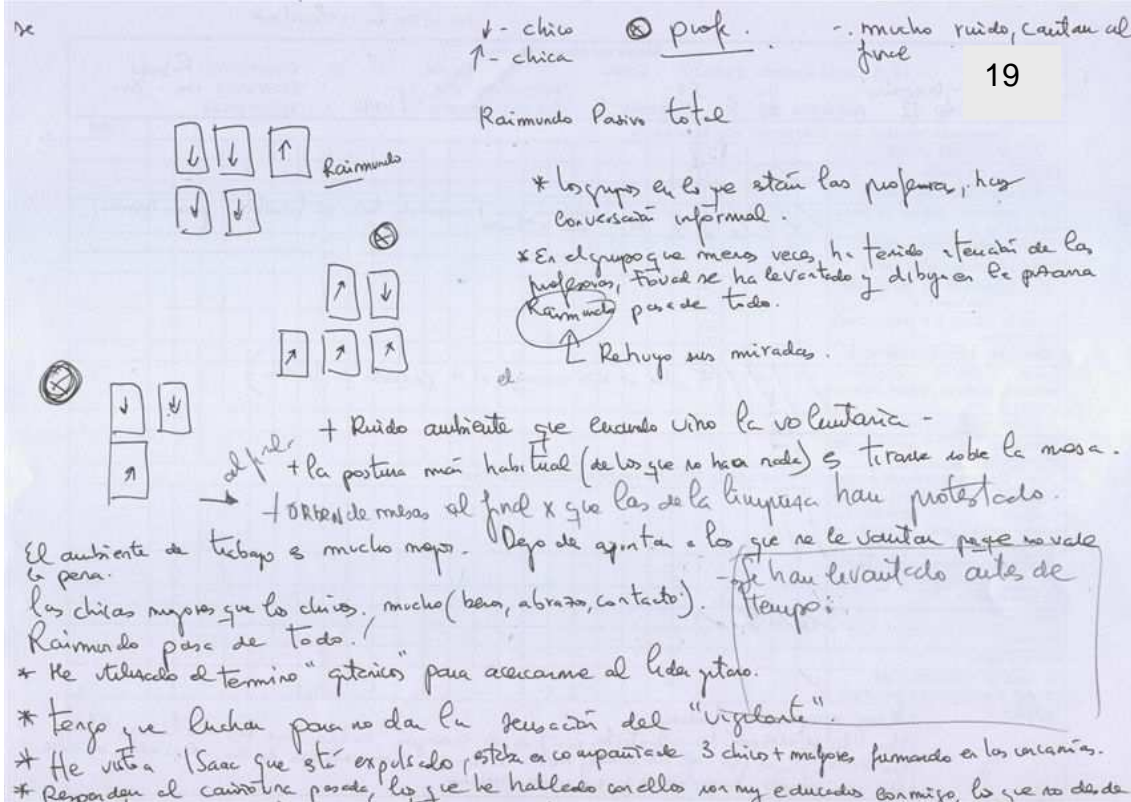 ↓ - chico
↑ - chica
⊗ prof.
- mucho ruido, cantan al
final
19
Raimundo Pasivo total
Raimundo
* los grupos en lo que están las profesoras, hay
conversación informal.
* En el grupo que menos veces ha tenido atención de las
profesoras, se ha levantado y dibuja en la pizarra
Raimundo pasa de todo.
Rehuyo sus miradas.
el
+ Ruido ambiente que cuando vino la voluntaria -
+ la postura más habitual (de los que no hacen nada) es tirarse sobre la mesa.
+ ORDEN de mesas al final x que las de la limpieza han protestado.
El ambiente de trabajo es mucho mejor. Dejo de apuntar a los que se levantan porque no vale
la pena.
- Se han levantado antes de
tiempo:
las chicas mejores que los chicos. mucho (besos, abrazos, contacto).
Raimundo pasa de todo!
* He utilizado el termino "gitanico" para acercarme al lider gitano.
* tengo que luchar para no dar la sensación del "vigilante".
* He visto a ISaac que está expulsado, estaba en compañia de 3 chicos + mayores fumando en las cercanías.
* Responden al cariño, los que he hablado con ellos son muy educados conmigo, lo que no desde